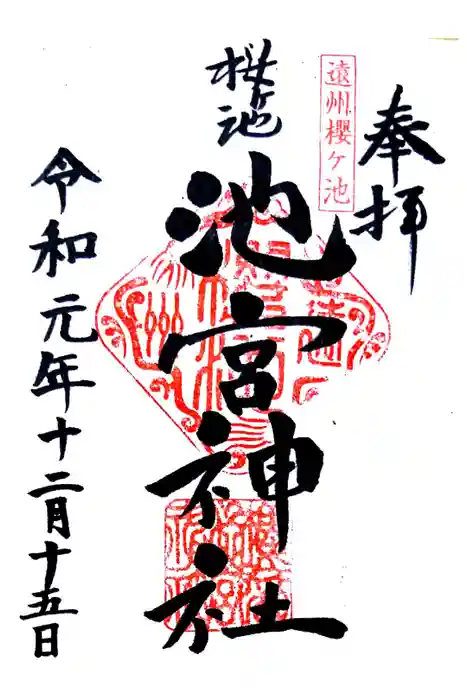 奉拝
遠州櫻ヶ池
桜ヶ池
池宮神社
令和元年十二月十五日